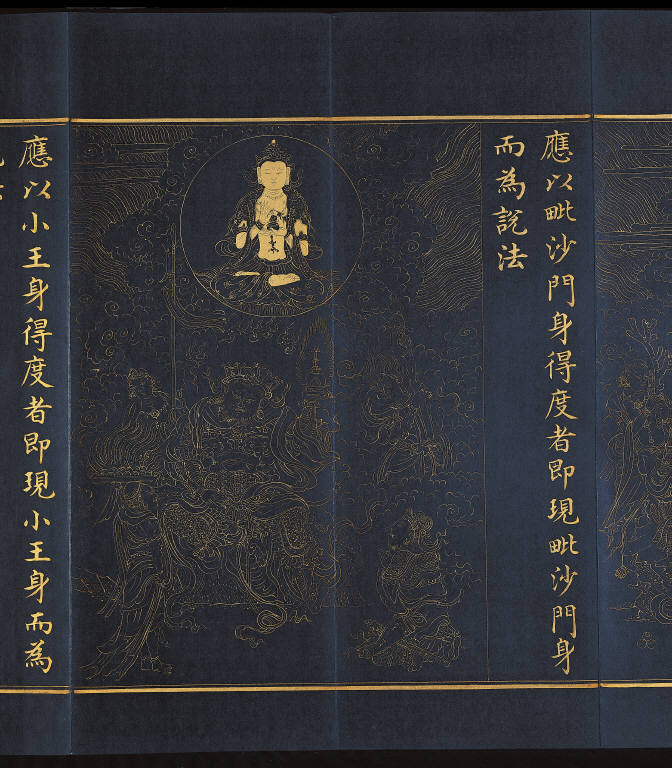 應以毗沙門身得度者即現毗沙門身
而為説法
應以小王身得度者即現小王身而為